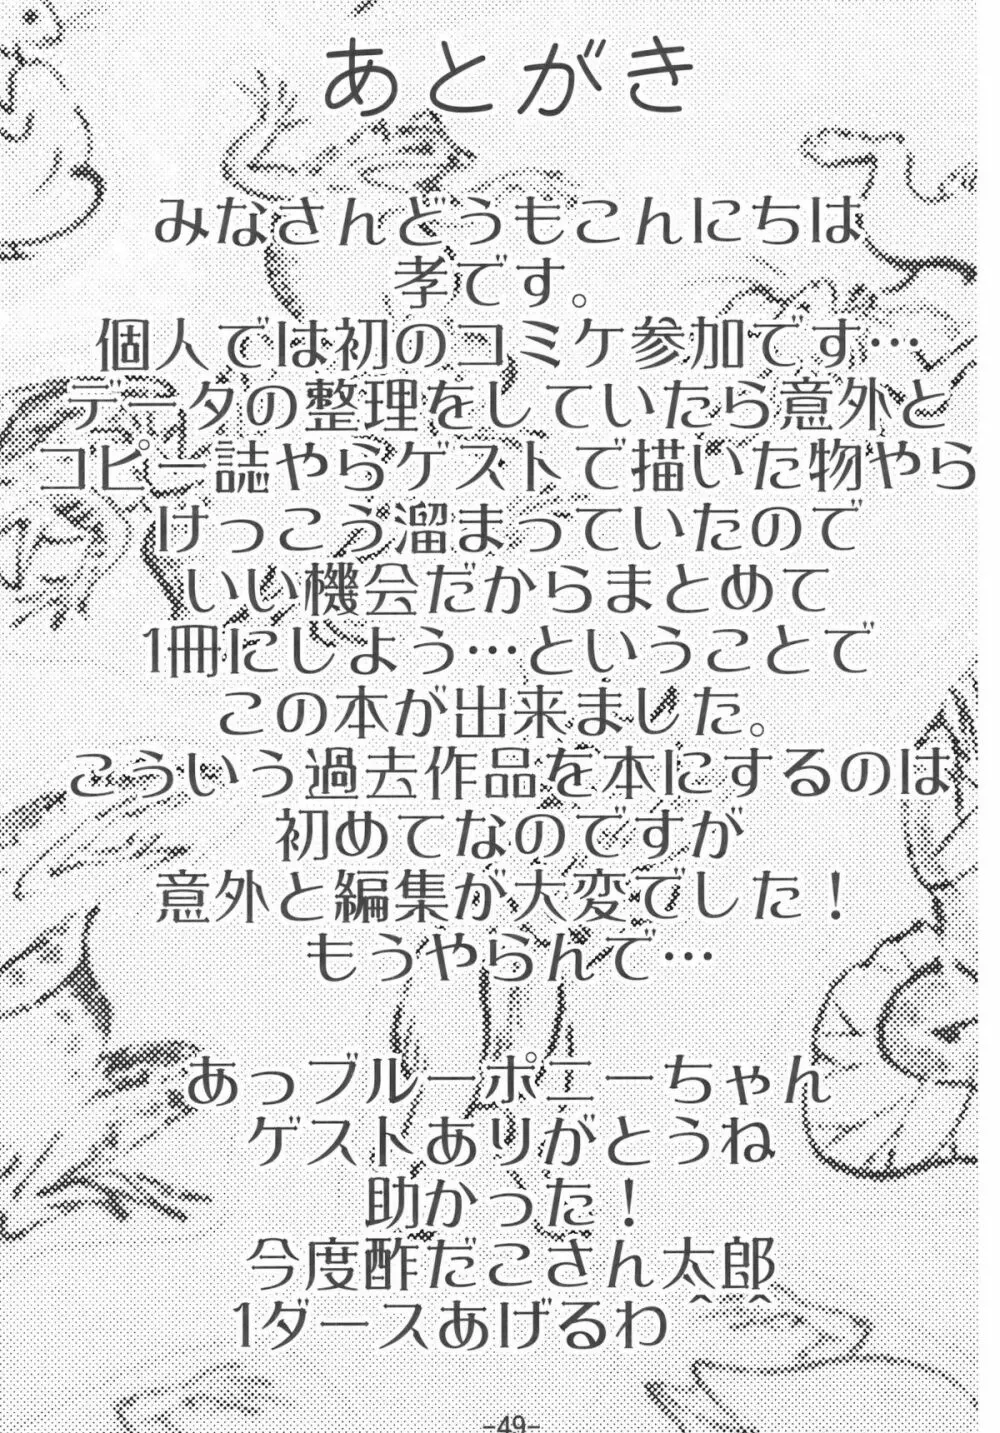 あとがき
みなさんどうもこんにちは
孝です。
個人では初のコミケ参加です…
データの整理をしていたら意外と
コピー誌やらゲストで描いた物やら
けっこう溜まっていたので
いい機会だからまとめて
1冊にしよう…ということで
この本が出来ました。
こういう過去作品を本にするのは
初めてなのですが
意外と編集が大変でした！
もうやらんで…
あっブルーポニーちゃん
ゲストありがとうね
助かった！
今度酢だこさん太郎
1ダースあげるわ＾＾
-49-